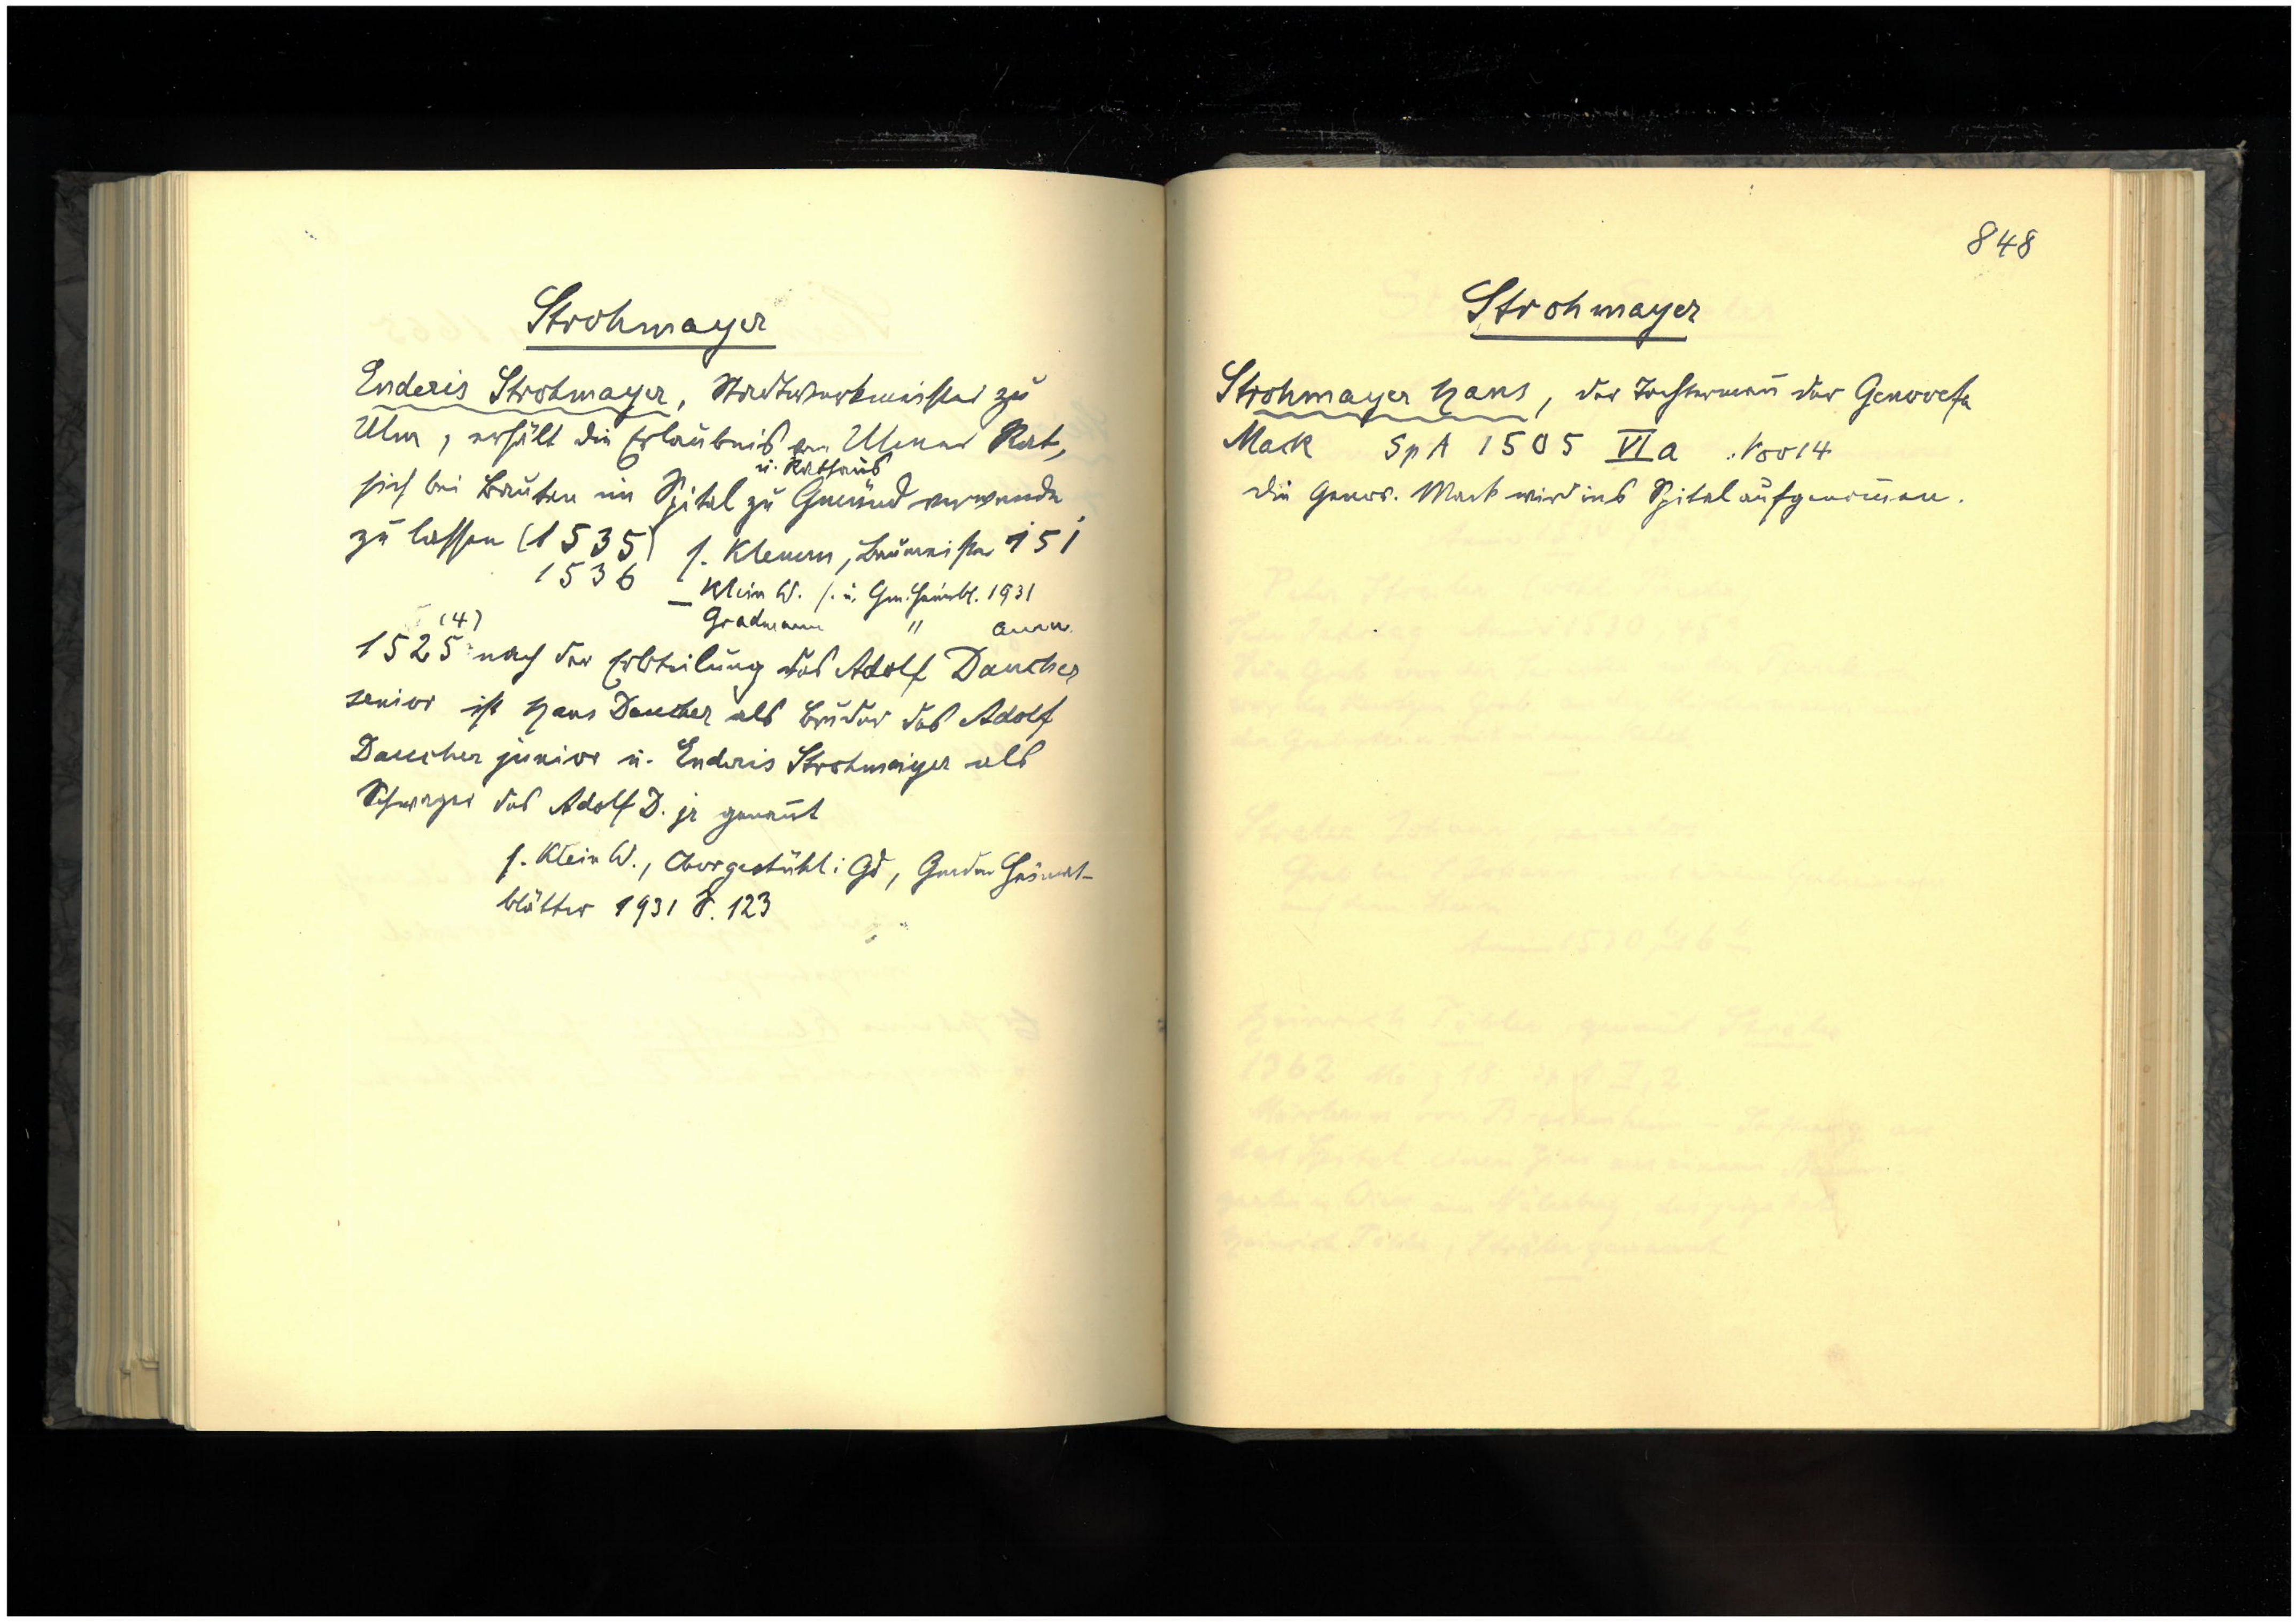 Strohmayer
Enderis Strohmayer, Stadtwerkmeister zu
Ulm, erhält die Erlaubnis vom Ulmer Rat,
u. Rathaus
sich bei Bauten im Spital zu Gmünd verwenden
zu lassen (1535) s. Klemm, Baumeister 151
1536 – Klein W. s. u. Gm. Heimbl. 1931
Gradmann " anm.
(4)
1525 nach der Erbteilung des Adolf Daucher
senior ist Hans Daucher als Bruder des Adolf
Daucher junior u. Enderis Strohmaiyer als
Schwager des Adolf D. jr genan̄t
s. Klein W., Chorgestühl i Gd, Gmdr Heimat-
blätter 1931 S. 123
848
Strohmayer
Strohmayer Hans, der Tochterman̄ der Genovefa
Mack SpA 1505 VI a
die Genov. Mack wird ins Spital aufgenom̄en.